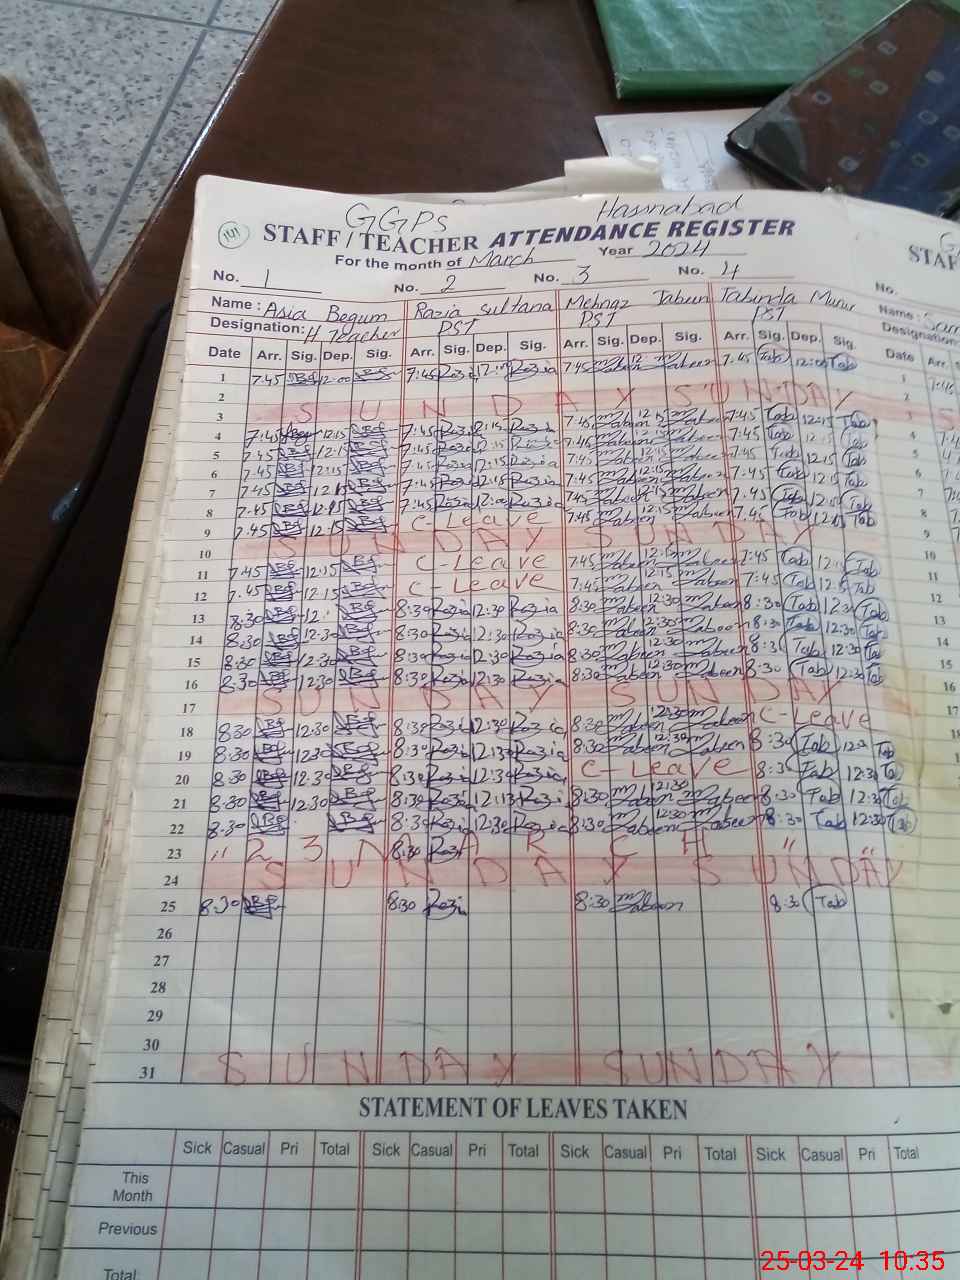 141 GGPS Hasnabad
STAFF / TEACHER ATTENDANCE REGISTER
For the month of March Year 2024
No. 1 No. 2 No. 3 No. 4 No.
Name : Asia Begum Razia Sultana Mehnaz Jabeen Tabinda Munir Name :
Designation: H Teacher PST PST PST Designation
Date Arr. Sig. Dep. Sig. Arr. Sig. Dep. Sig. Arr. Sig. Dep. Sig. Arr. Sig. Dep. Sig. Date Arr.
1 7:45 12:00 7:45 Razia Razia 7:45 Jabeen 12 Jabeen 7:45 Tab 12:00 Tab 1
2 2
3 SUNDAY SUNDAY 3
4 7:45 12:15 7:45 Razia 12:15 Razia 7:45 Jabeen 12:15 Jabeen 7:45 Tab 12:15 Tab 4
5 7:45 12:15 7:45 Razia 12:15 Razia 7:45 Jabeen 12:15 Jabeen 7:45 Tab 12:15 Tab 5
6 7:45 12:15 7:45 Razia 12:15 Razia 7:45 Jabeen 12:15 Jabeen 7:45 Tab 12:15 Tab 6
7 7:45 12:15 7:45 Razia 12:15 Razia 7:45 Jabeen 12:15 Jabeen 7:45 Tab 12:15 Tab 7
8 7:45 12:15 7:45 Razia 12:00 Razia 7:45 Jabeen 12:15 Jabeen 7:45 Tab 12:15 Tab 8
9 7:45 12:15 C-Leave 7:45 Jabeen 12:15 Jabeen 7:45 Tab 12:15 Tab 9
10 SUNDAY SUNDAY 10
11 7:45 12:15 C-Leave 7:45 Jabeen 12:15 Jabeen 7:45 Tab 12:15 Tab 11
12 7:45 12:15 C-Leave 7:45 Jabeen 12:15 Jabeen 7:45 Tab 12:15 Tab 12
13 8:30 12: 8:30 Razia 12:30 Razia 8:30 Jabeen 12:30 Jabeen 8:30 Tab 12:30 Tab 13
14 8:30 12:30 8:30 Razia 12:30 Razia 8:30 Jabeen 12:30 Jabeen 8:30 Tab 12:30 Tab 14
15 8:30 12:30 8:30 Razia 12:30 Razia 8:30 Jabeen 12:30 Jabeen 8:30 Tab 12:30 Tab 15
16 8:30 12:30 8:30 Razia 12:30 Razia 8:30 Jabeen 12:30 Jabeen 8:30 Tab 12:30 Tab 16
17 SUNDAY SUNDAY 17
18 8:30 12:30 8:30 Razia 12:30 Razia 8:30 Jabeen 12:30 Jabeen C-Leave
19 8:30 12:30 8:30 Razia 12:30 Razia 8:30 Jabeen 12:30 Jabeen 8:30 Tab 12:30 Tab
20 8:30 12:30 8:30 Razia 12:30 Razia C-Leave 8:30 Tab 12:30 Tab
21 8:30 12:30 8:30 Razia Razia 8:30 Jabeen 12:30 Jabeen 8:30 Tab 12:30 Tab
22 8:30 8:30 Razia 12:30 Razia 8:30 Jabeen 12:30 Jabeen 8:30 Tab 12:30 Tab
23 " 23 MARCH " "
24 SUNDAY SUNDAY
25 8:30 8:30 Razia 8:30 Jabeen 8:30 Tab
26
27
28
29
30
31 SUNDAY SUNDAY
STATEMENT OF LEAVES TAKEN
Sick Casual Pri Total Sick Casual Pri Total Sick Casual Pri Total Sick Casual Pri Total
This Month
Previous
Total
25-03-24 10:35